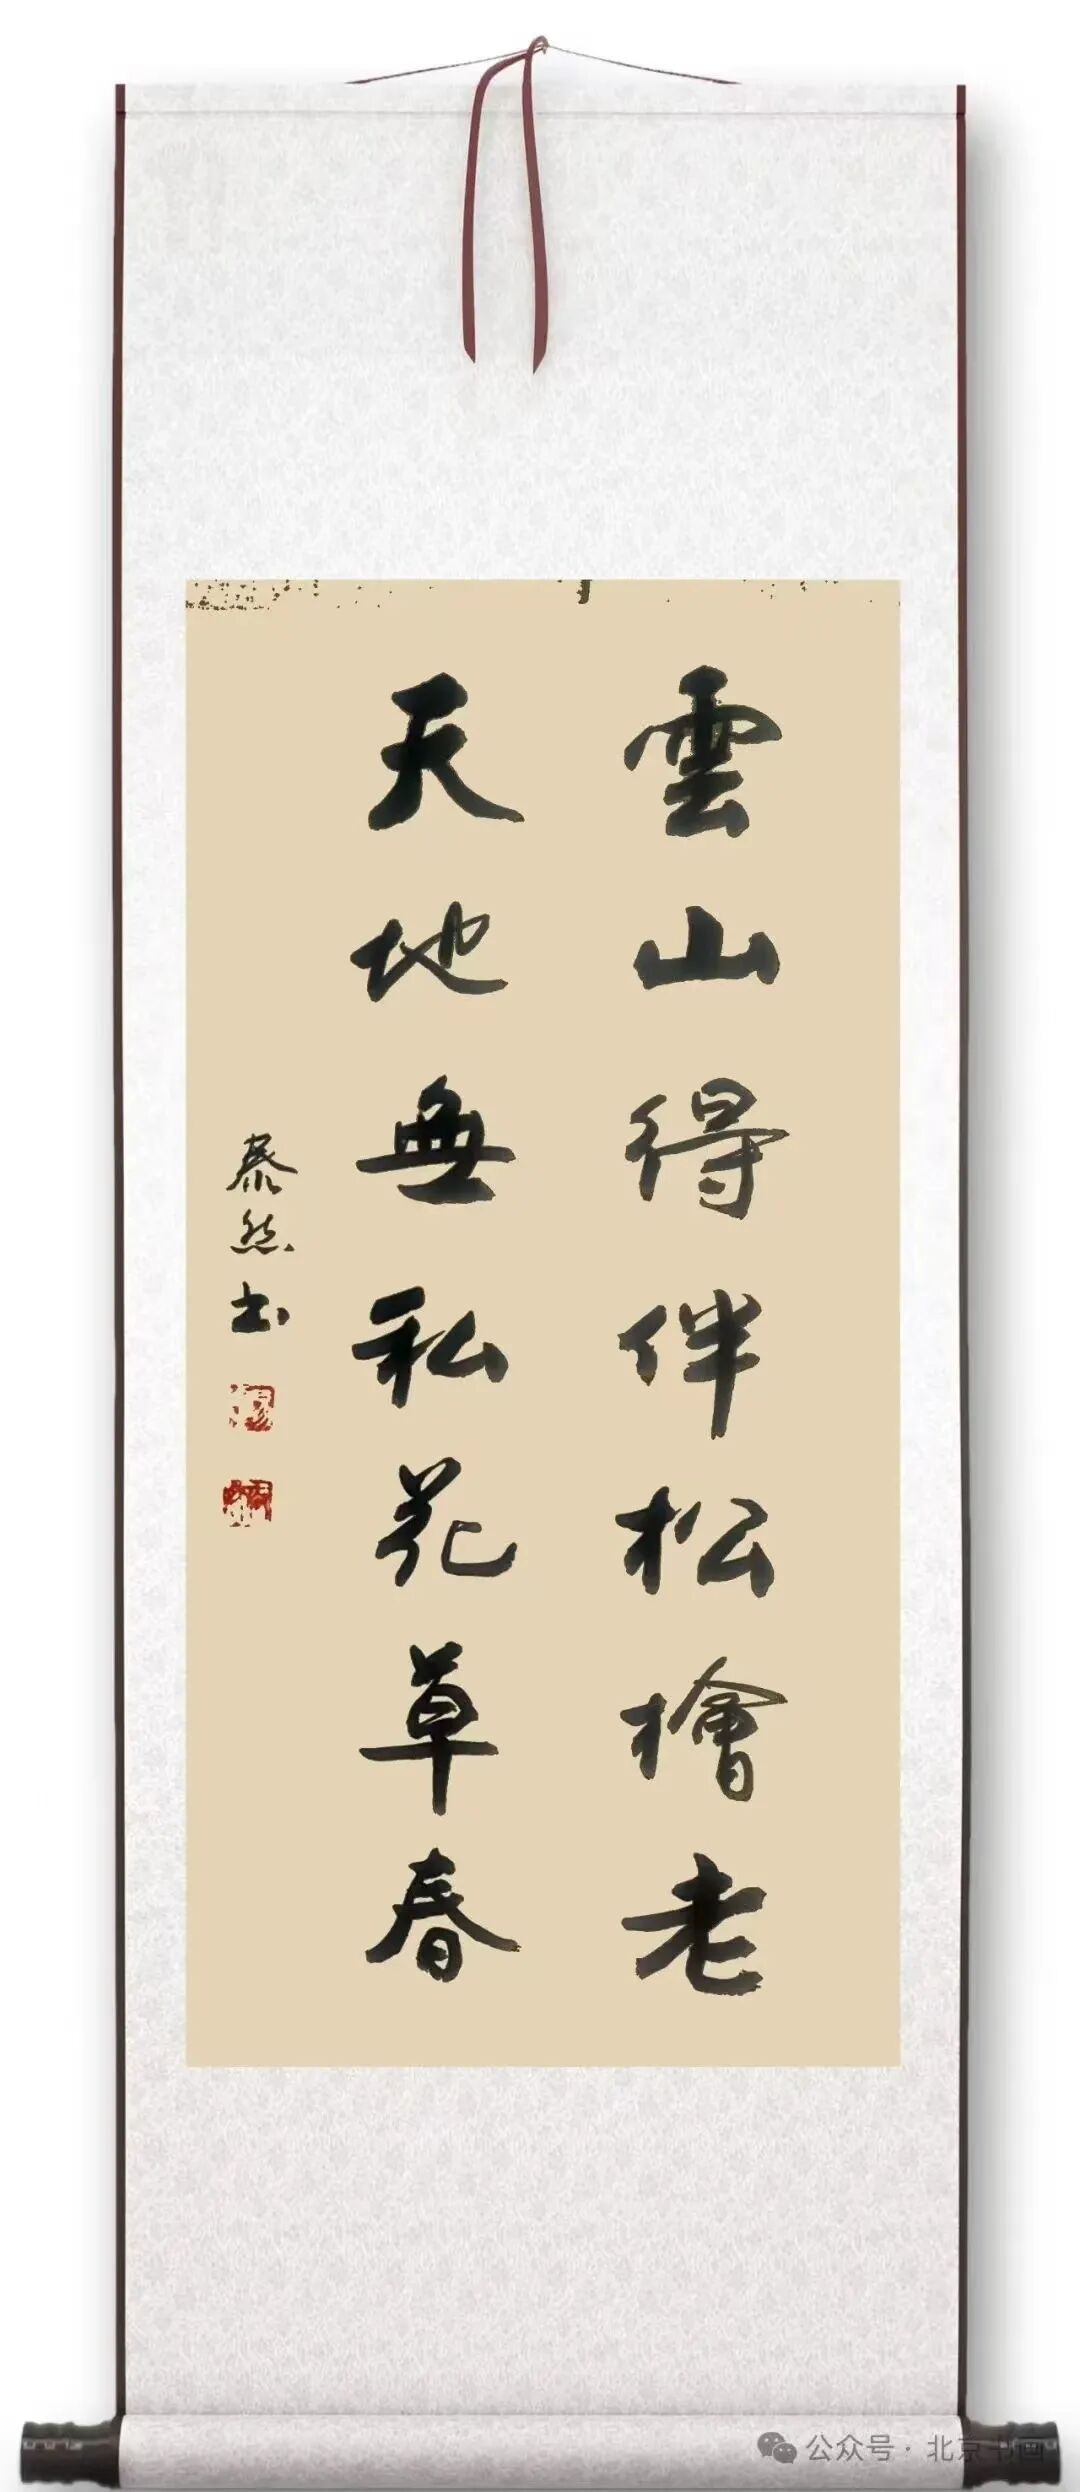 雲山得伴松檜老
天地無私花草春
泰然书
公众号·北京书画